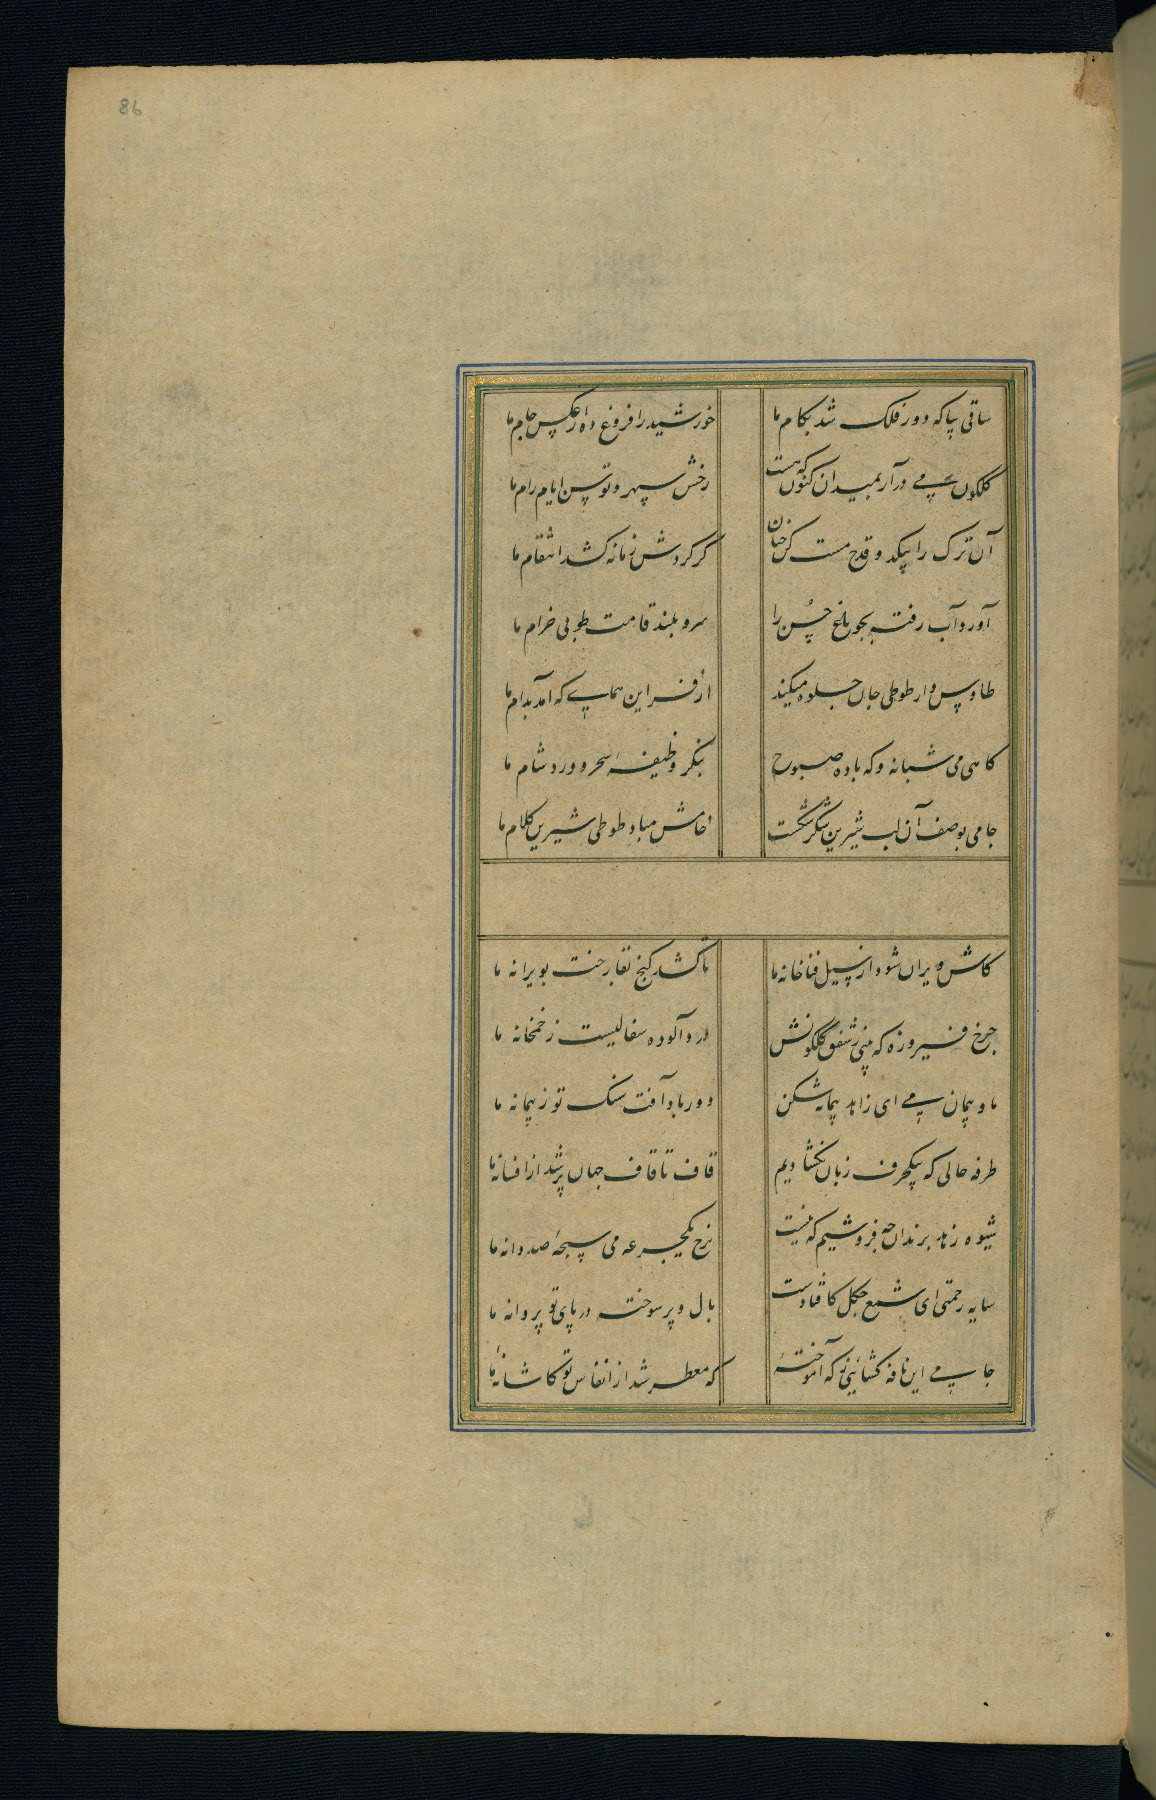 86
ساقی بیا که دور فلک شد بکام ما خورشید را فروغ ده از عکس جام ما
گلگون می در آر بمیدان کنون که هست رخش سپهر و توسن ایام رام ما
آن ترک را بیکدو قدح مست کن چنان کز گردش زمانه کشد انتقام ما
آورد آب رفته بجو باغ حسن را سرو بلند قامت طوبی خرام ما
طاوس وار طوطی جان جلوه میکند از فر این همای که آمد بدام ما
گاهی می شبانه و گه باده صبوح بنگر وظیفهٔ سحر و ورد شام ما
جامی بوصف آن لب شیرین شکر شکست خامش مباد طوطی شیرین کلام ما
کاش ویران شود از سیل فنا خانه ما تا کشد گنج بقا رخت بویرانه ما
چرخ فیروزه که بینی ز شفق گلگونش درد آلوده سفالیست ز خمخانه ما
ما و پیمان می ای زاهد پیمانه شکن دور باد آفت سنگ تو ز پیمانه ما
طرفه حالی که یکحرف زبان نگشادیم قاف تا قاف جهان پر شد از افسانه ما
شیوه زهد برندان چه فروشیم که نیست نرخ یکجرعه می سبحهٔ صد دانه ما
سایه رحمتی ای شمع چگل کافتادست بال و پر سوخته در پای تو پروانه ما
جامی این نافه گشایی ز که آموختهٔ که معطر شد از انفاس تو کاشانهٔ ما